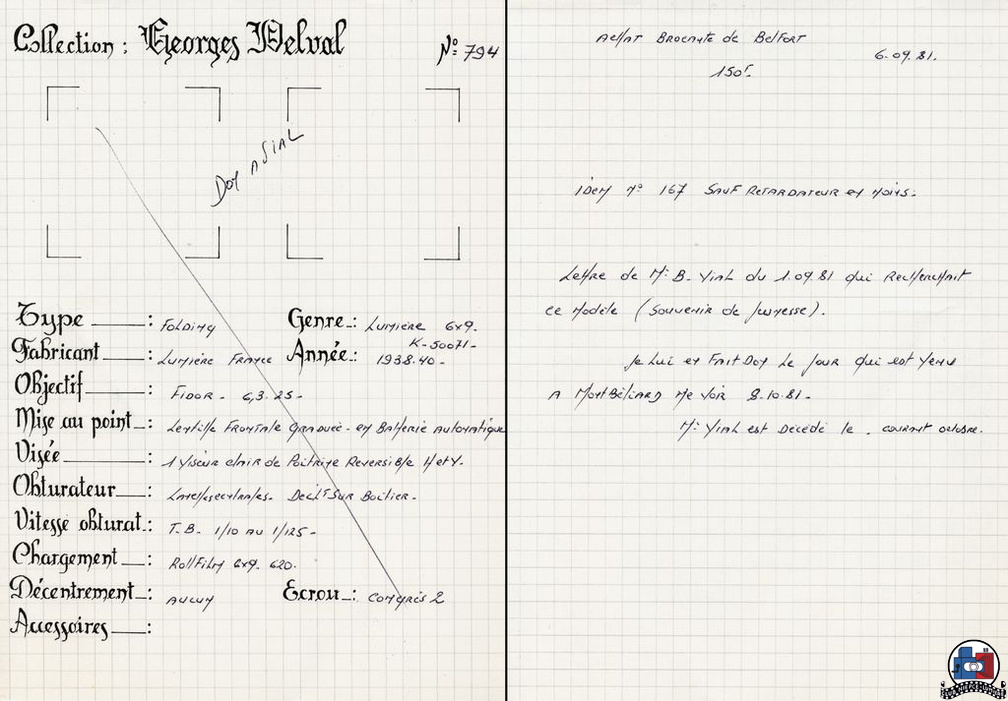 Collection : Georges Delval
N°: 794
Don
Type : Folding
Genre : Lumière 6x9.
K-50071-
Fabricant : Lumière France
Année : 1938.40-
Objectif : FIDOR - 6,3. 25-
Mise au point : Lentille Frontale Graduée - en Batterie Automatique
Visée : 1 Viseur clair de Poitrine Reversible H et V.
Obturateur : Décl.t sur Boîtier.
Vitesse obturat. : T.B. 1/10 au 1/125-
Chargement : RollFilm 6x9. 620.
Décentrement : Aucun
Ecrou : Congrès 2
Accessoires :
Achat Brocante de Belfort
6.09.81.
150F.
idem N° 167 Sauf Retardateur en moins.
Lettre de Mr B. Vial du 1.09.81 qui Recherchait
ce Modèle (Souvenir de Jeunesse).
Je Lui en Fait Don Le Jour qui est Venu
A Montbéliard Me Voir 8.10.81.
Mr Vial est Décédé le . courant octobre.